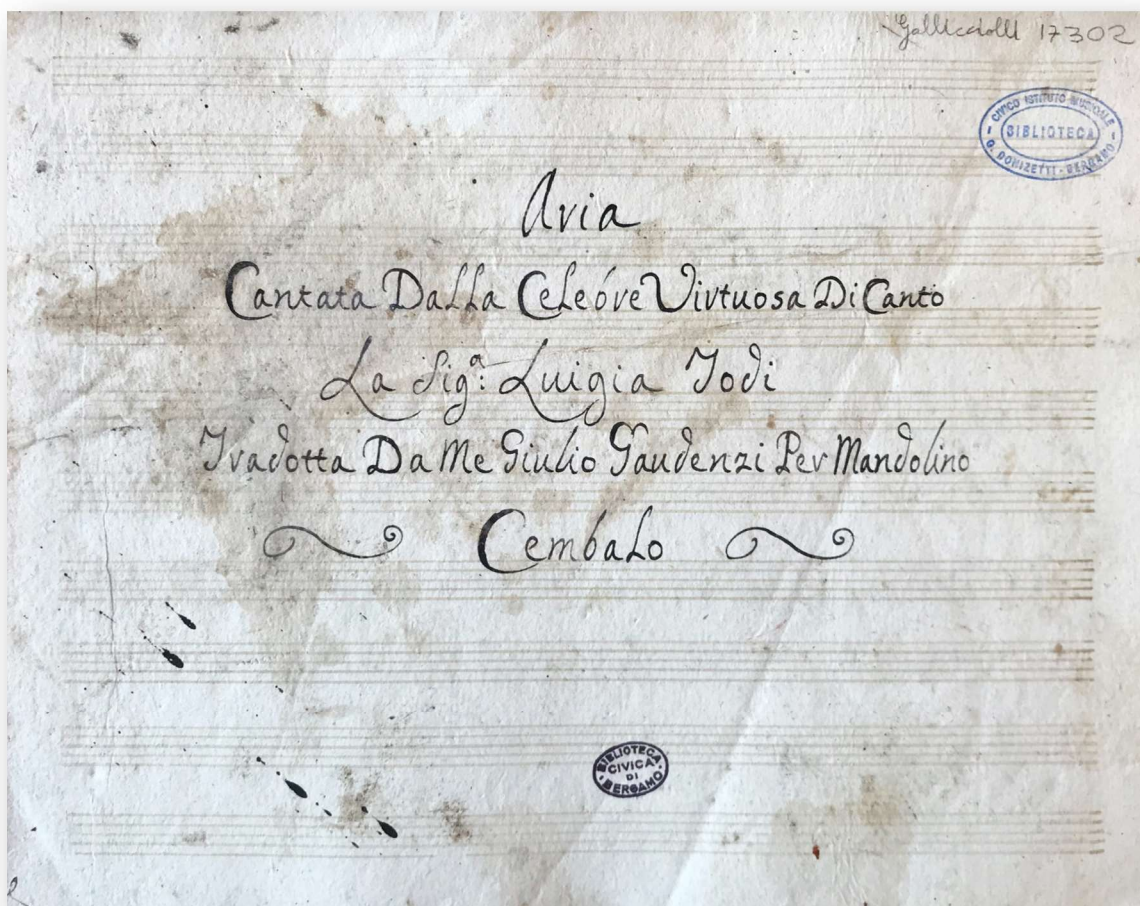 Gallicciolli 17302
CIVICO ISTITUTO MUSICALE
BIBLIOTECA
G. DONIZETTI - BERGAMO
Aria
Cantata Dalla Celebre Virtuosa Di Canto
La Sig.ª Luigia Todi
Tradotta Da Me Giulio Gaudenzi Per Mandolino
Cembalo
BIBLIOTECA
CIVICA
DI
BERGAMO